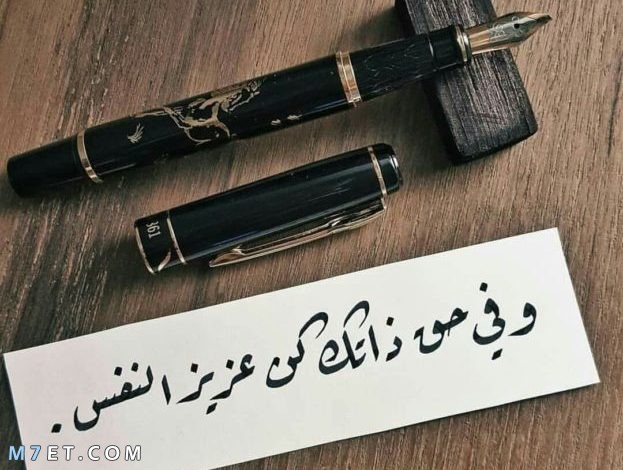 361
وفي حق ذاتك كن عزيز النفس .
M7ET.COM